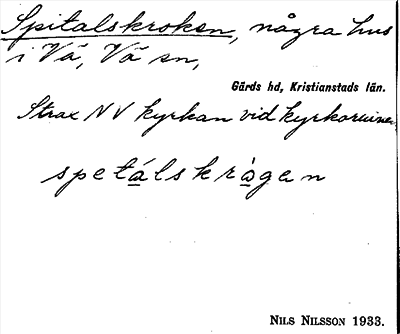 Spitalskroken, några hus
i Vä, Vä sn,
Gärds hd, Kristianstads län.
Strax NV kyrkan vid kyrkoruinen
spetálskrògen
NILS NILSSON 1933.